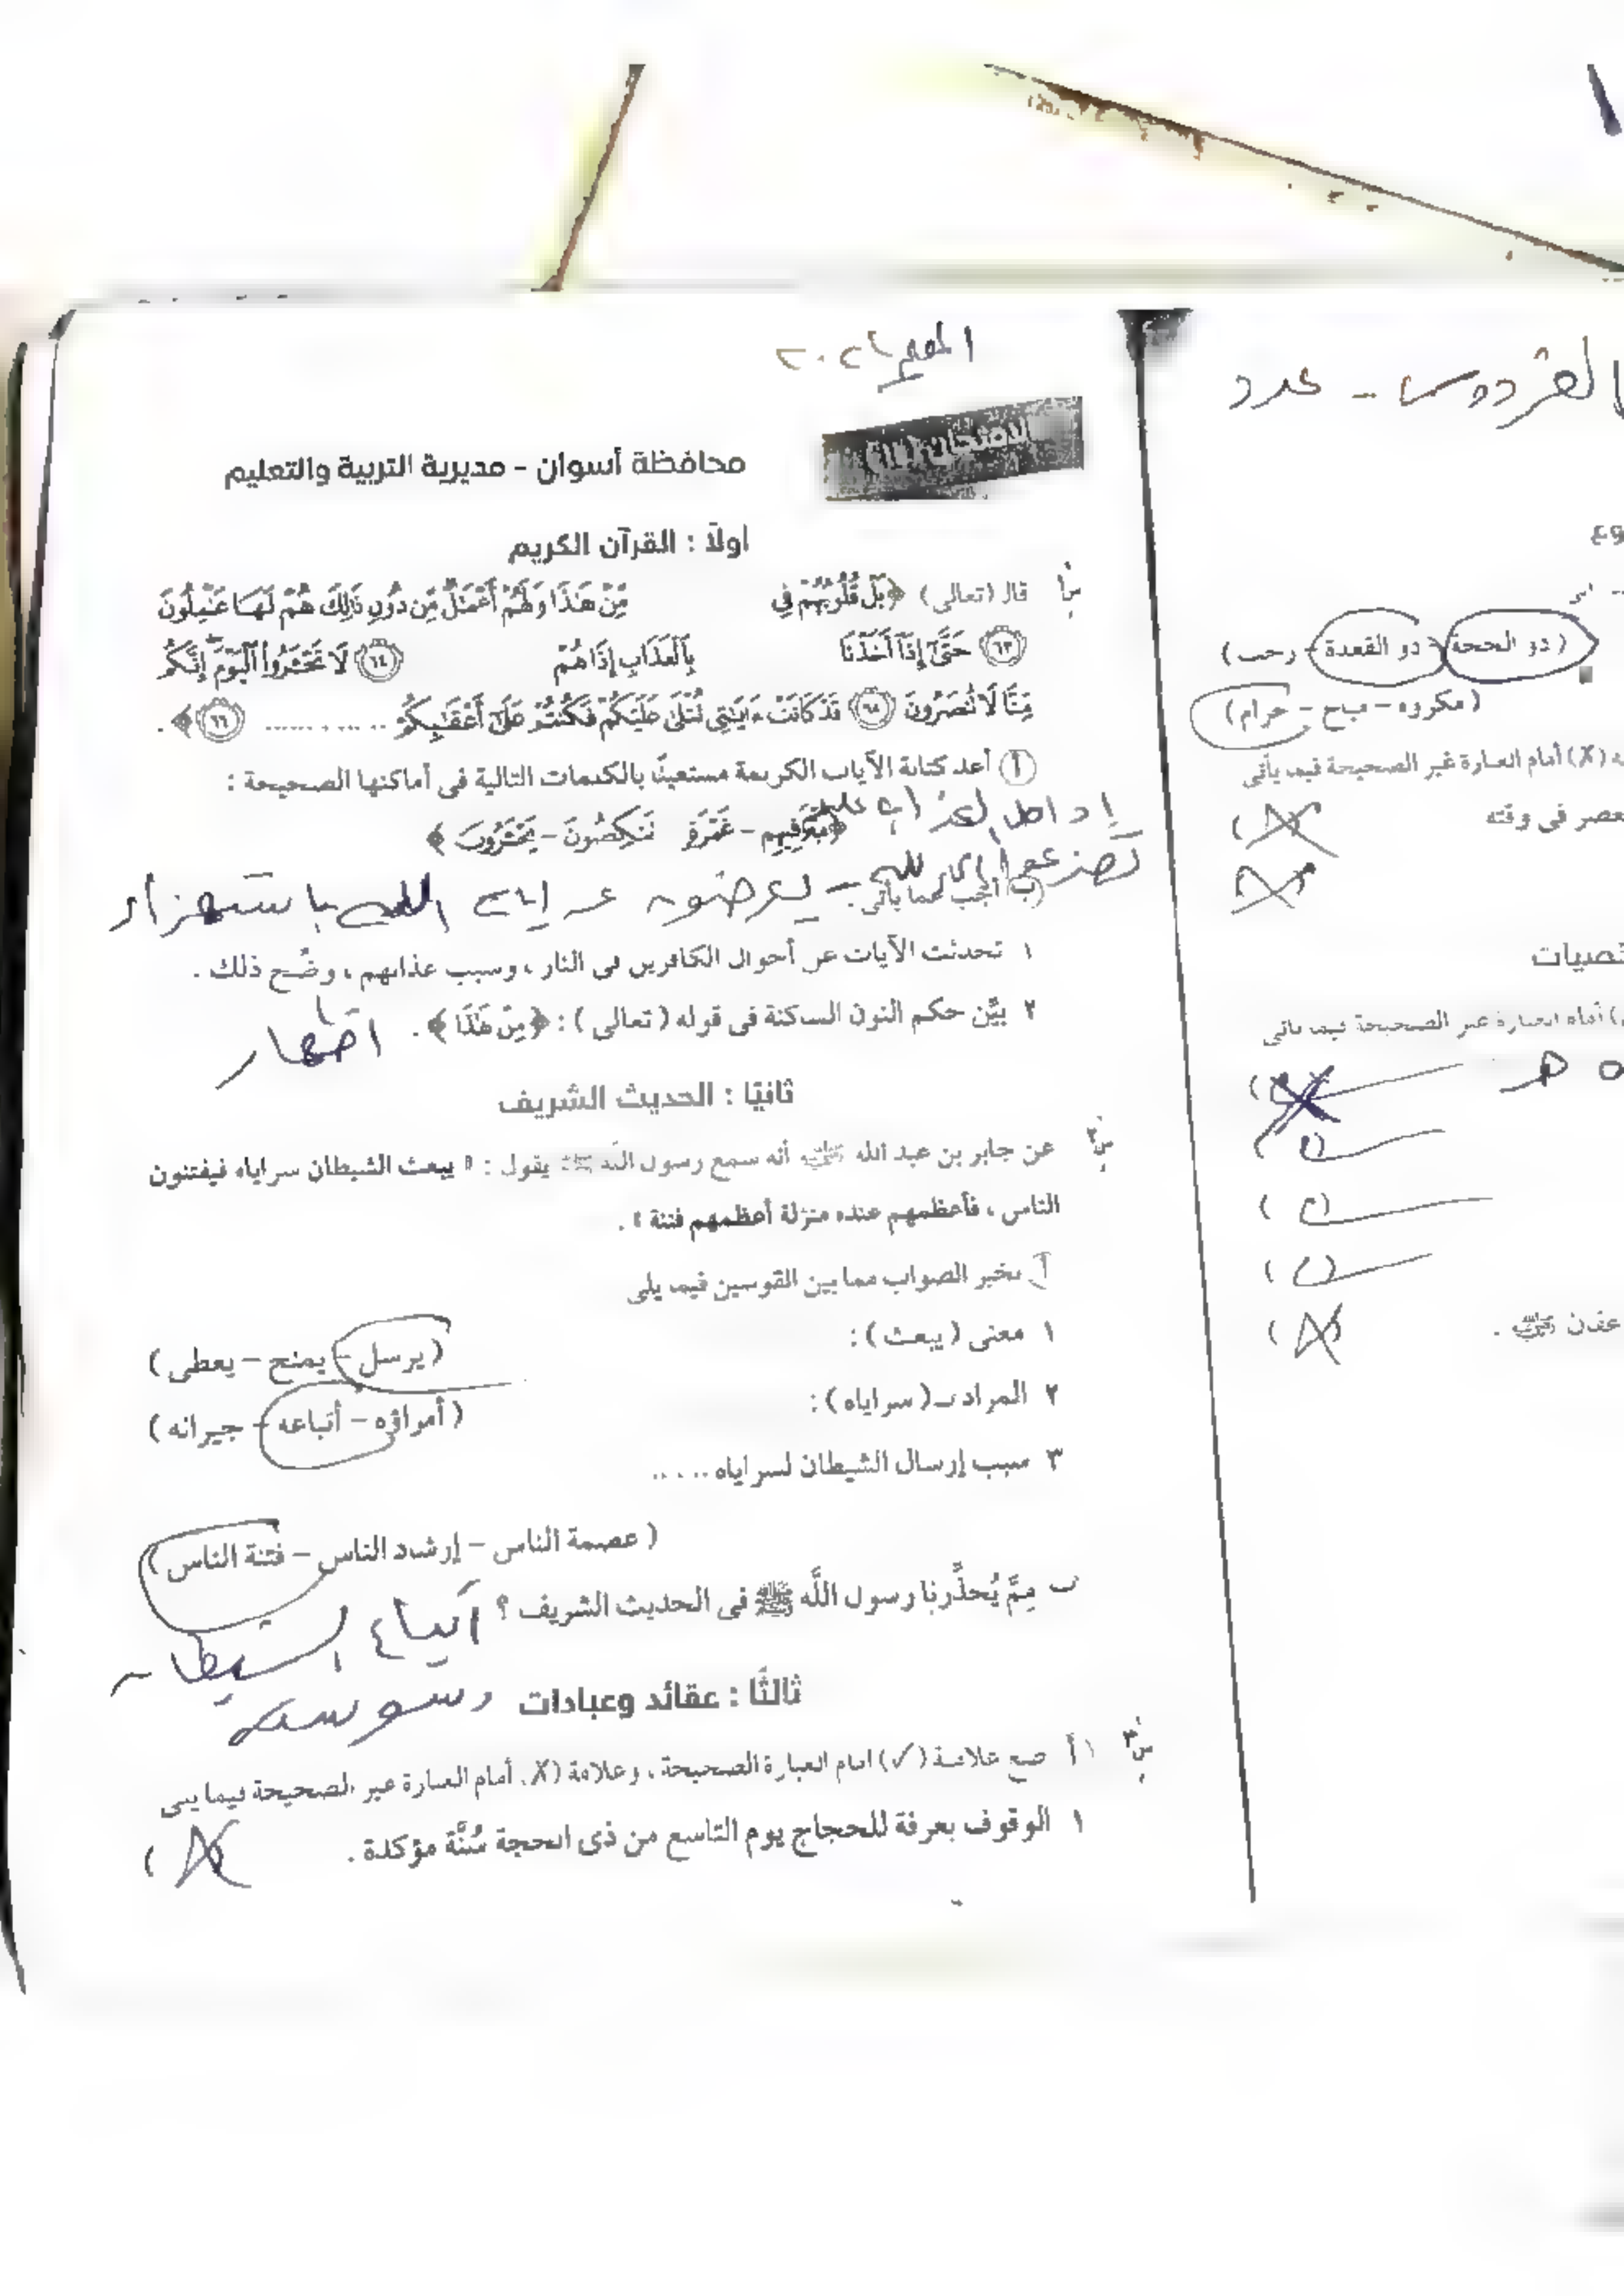 المعلم ٢٠٢٦
الامتحان
محافظة أسوان - مديرية التربية والتعليم
أولاً : القرآن الكريم
س١ قال (تعالى) ﴿ بَلْ قُلُوبُهُمْ فِي مِّنْ هَٰذَا وَلَهُمْ أَعْمَٰلٌ مِّن دُونِ ذَٰلِكَ هُمْ لَهَا عَٰمِلُونَ
﴿٦٣﴾ حَتَّىٰ إِذَا أَخَذْنَا بِالْعَذَابِ إِذَا هُمْ ﴿٦٤﴾ لَا تَجْـَٔرُوا الْيَوْمَ إِنَّكُم
مِّنَّا لَا تُنصَرُونَ ﴿٦٥﴾ قَدْ كَانَتْ ءَايَٰتِي تُتْلَىٰ عَلَيْكُمْ فَكُنتُمْ عَلَىٰ أَعْقَٰبِكُمْ .......... ﴿٦٦﴾ ﴾ .
أ أعد كتابة الآيات الكريمة مستعينًا بالكلمات التالية في أماكنها الصحيحة :
﴿ مُتْرَفِيهِم - غَمْرَةٍ تَنكِصُونَ - يَجْـَٔرُونَ ﴾
ب أجب عما يأتى :
باستهزاء
١ تحدثت الآيات عن أحوال الكافرين فى النار ، وسبب عذابهم ، وضِّح ذلك .
٢ بيِّن حكم النون الساكنة فى قوله (تعالى) : ﴿ مِنْ هَٰذَا ﴾ .
اضهار
ثانيًا : الحديث الشريف
س٢ عن جابر بن عبد الله رضي الله عنه أنه سمع رسول الله ﷺ يقول : « يبعث الشيطان سراياه فيفتنون
الناس ، فأعظمهم عنده منزلة أعظمهم فتنة » .
أ تخير الصواب مما بين القوسين فيما يلى
١ معنى (يبعث) : (يرسل - يمنح - يعطى)
٢ المراد بـ (سراياه) : (أمراؤه - أتباعه - جيرانه)
٣ سبب إرسال الشيطان لسراياه .....
(عصمة الناس - إرشاد الناس - فتنة الناس)
ب مِمَّ يُحذِّرنا رسول اللَّه ﷺ فى الحديث الشريف ؟
اتباع الشيطان
وسوسته
ثالثًا : عقائد وعبادات
س٣ أ ضع علامة (✓) أمام العبارة الصحيحة ، وعلامة (X) أمام العبارة غير الصحيحة فيما يلى
١ الوقوف بعرفة للحجاج يوم التاسع من ذى الحجة سُنَّة مؤكدة . (X)
الفردوس - عدد
(ذو الحجة - ذو القعدة - رجب)
(مكروه - مباح - حرام)
(X) أمام العبارة غير الصحيحة فيما يأتى
عصر فى وقته
أمام العبارة غير الصحيحة فيما يأتى
عفان رضي الله عنه .